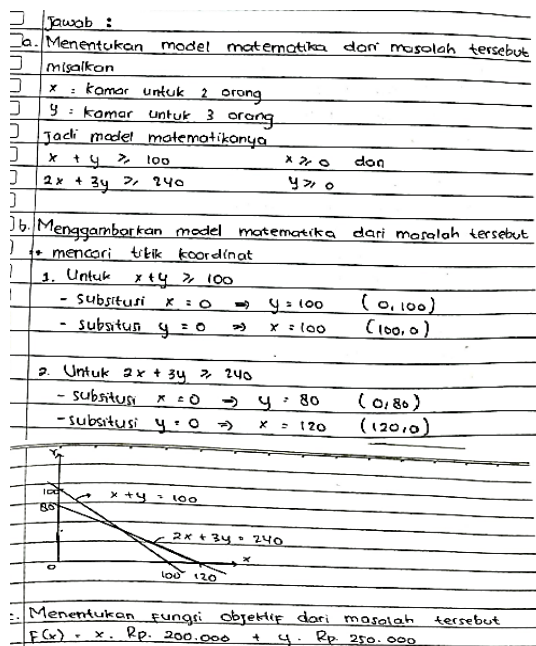 Jawab :
a. Menentukan model matematika dari masalah tersebut
misalkan
x = kamar untuk 2 orang
y = kamar untuk 3 orang
Jadi model matematikanya
x + y ≥ 100 x ≥ 0 dan
2x + 3y ≥ 240 y ≥ 0
b. Menggambarkan model matematika dari masalah tersebut
* mencari titik koordinat
1. Untuk x+y ≥ 100
- subsitusi x = 0 ⇒ y = 100 (0,100)
- subsitusi y = 0 ⇒ x = 100 (100,0)
2. Untuk 2x + 3y ≥ 240
- subsitusi x = 0 ⇒ y = 80 (0,80)
- subsitusi y = 0 ⇒ x = 120 (120,0)
Y
100 x + y = 100
80
2x + 3y = 240
x
0 100 120
c. Menentukan fungsi objektif dari masalah tersebut
F(x) = x. Rp. 200.000 + y. Rp. 250.000